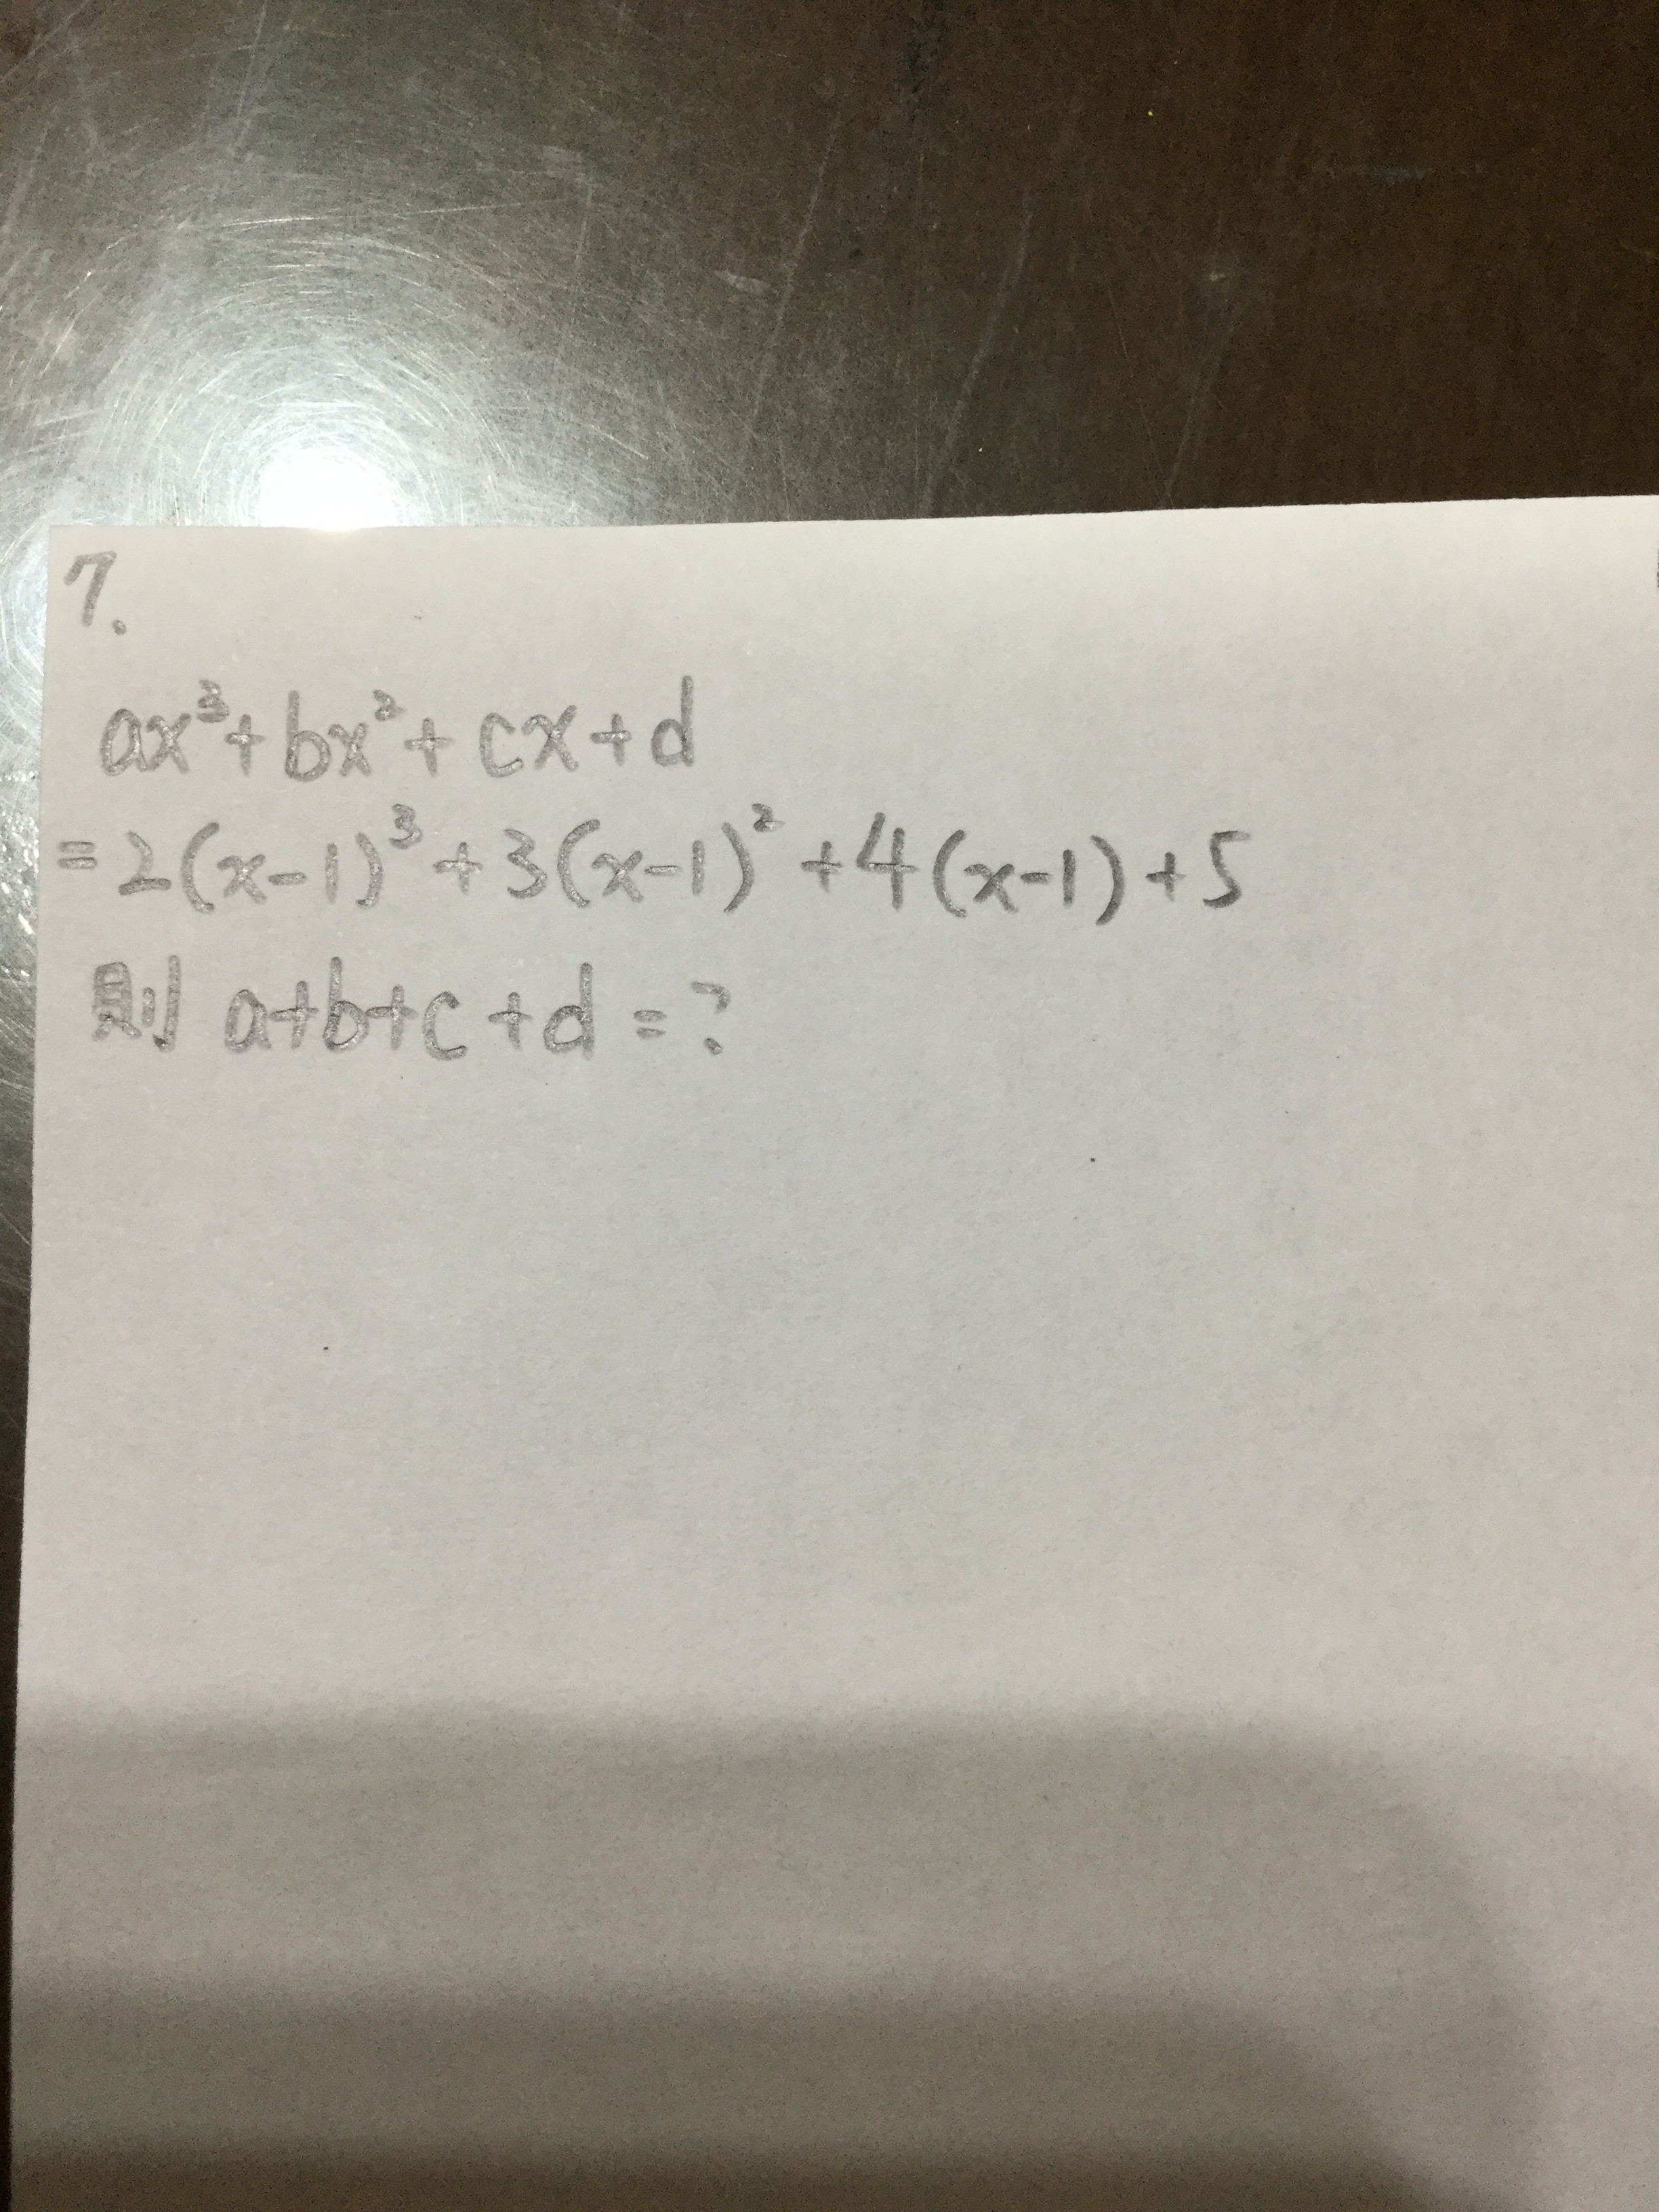 7.
ax³+bx²+cx+d
=2(x-1)³+3(x-1)²+4(x-1)+5
則 a+b+c+d=?